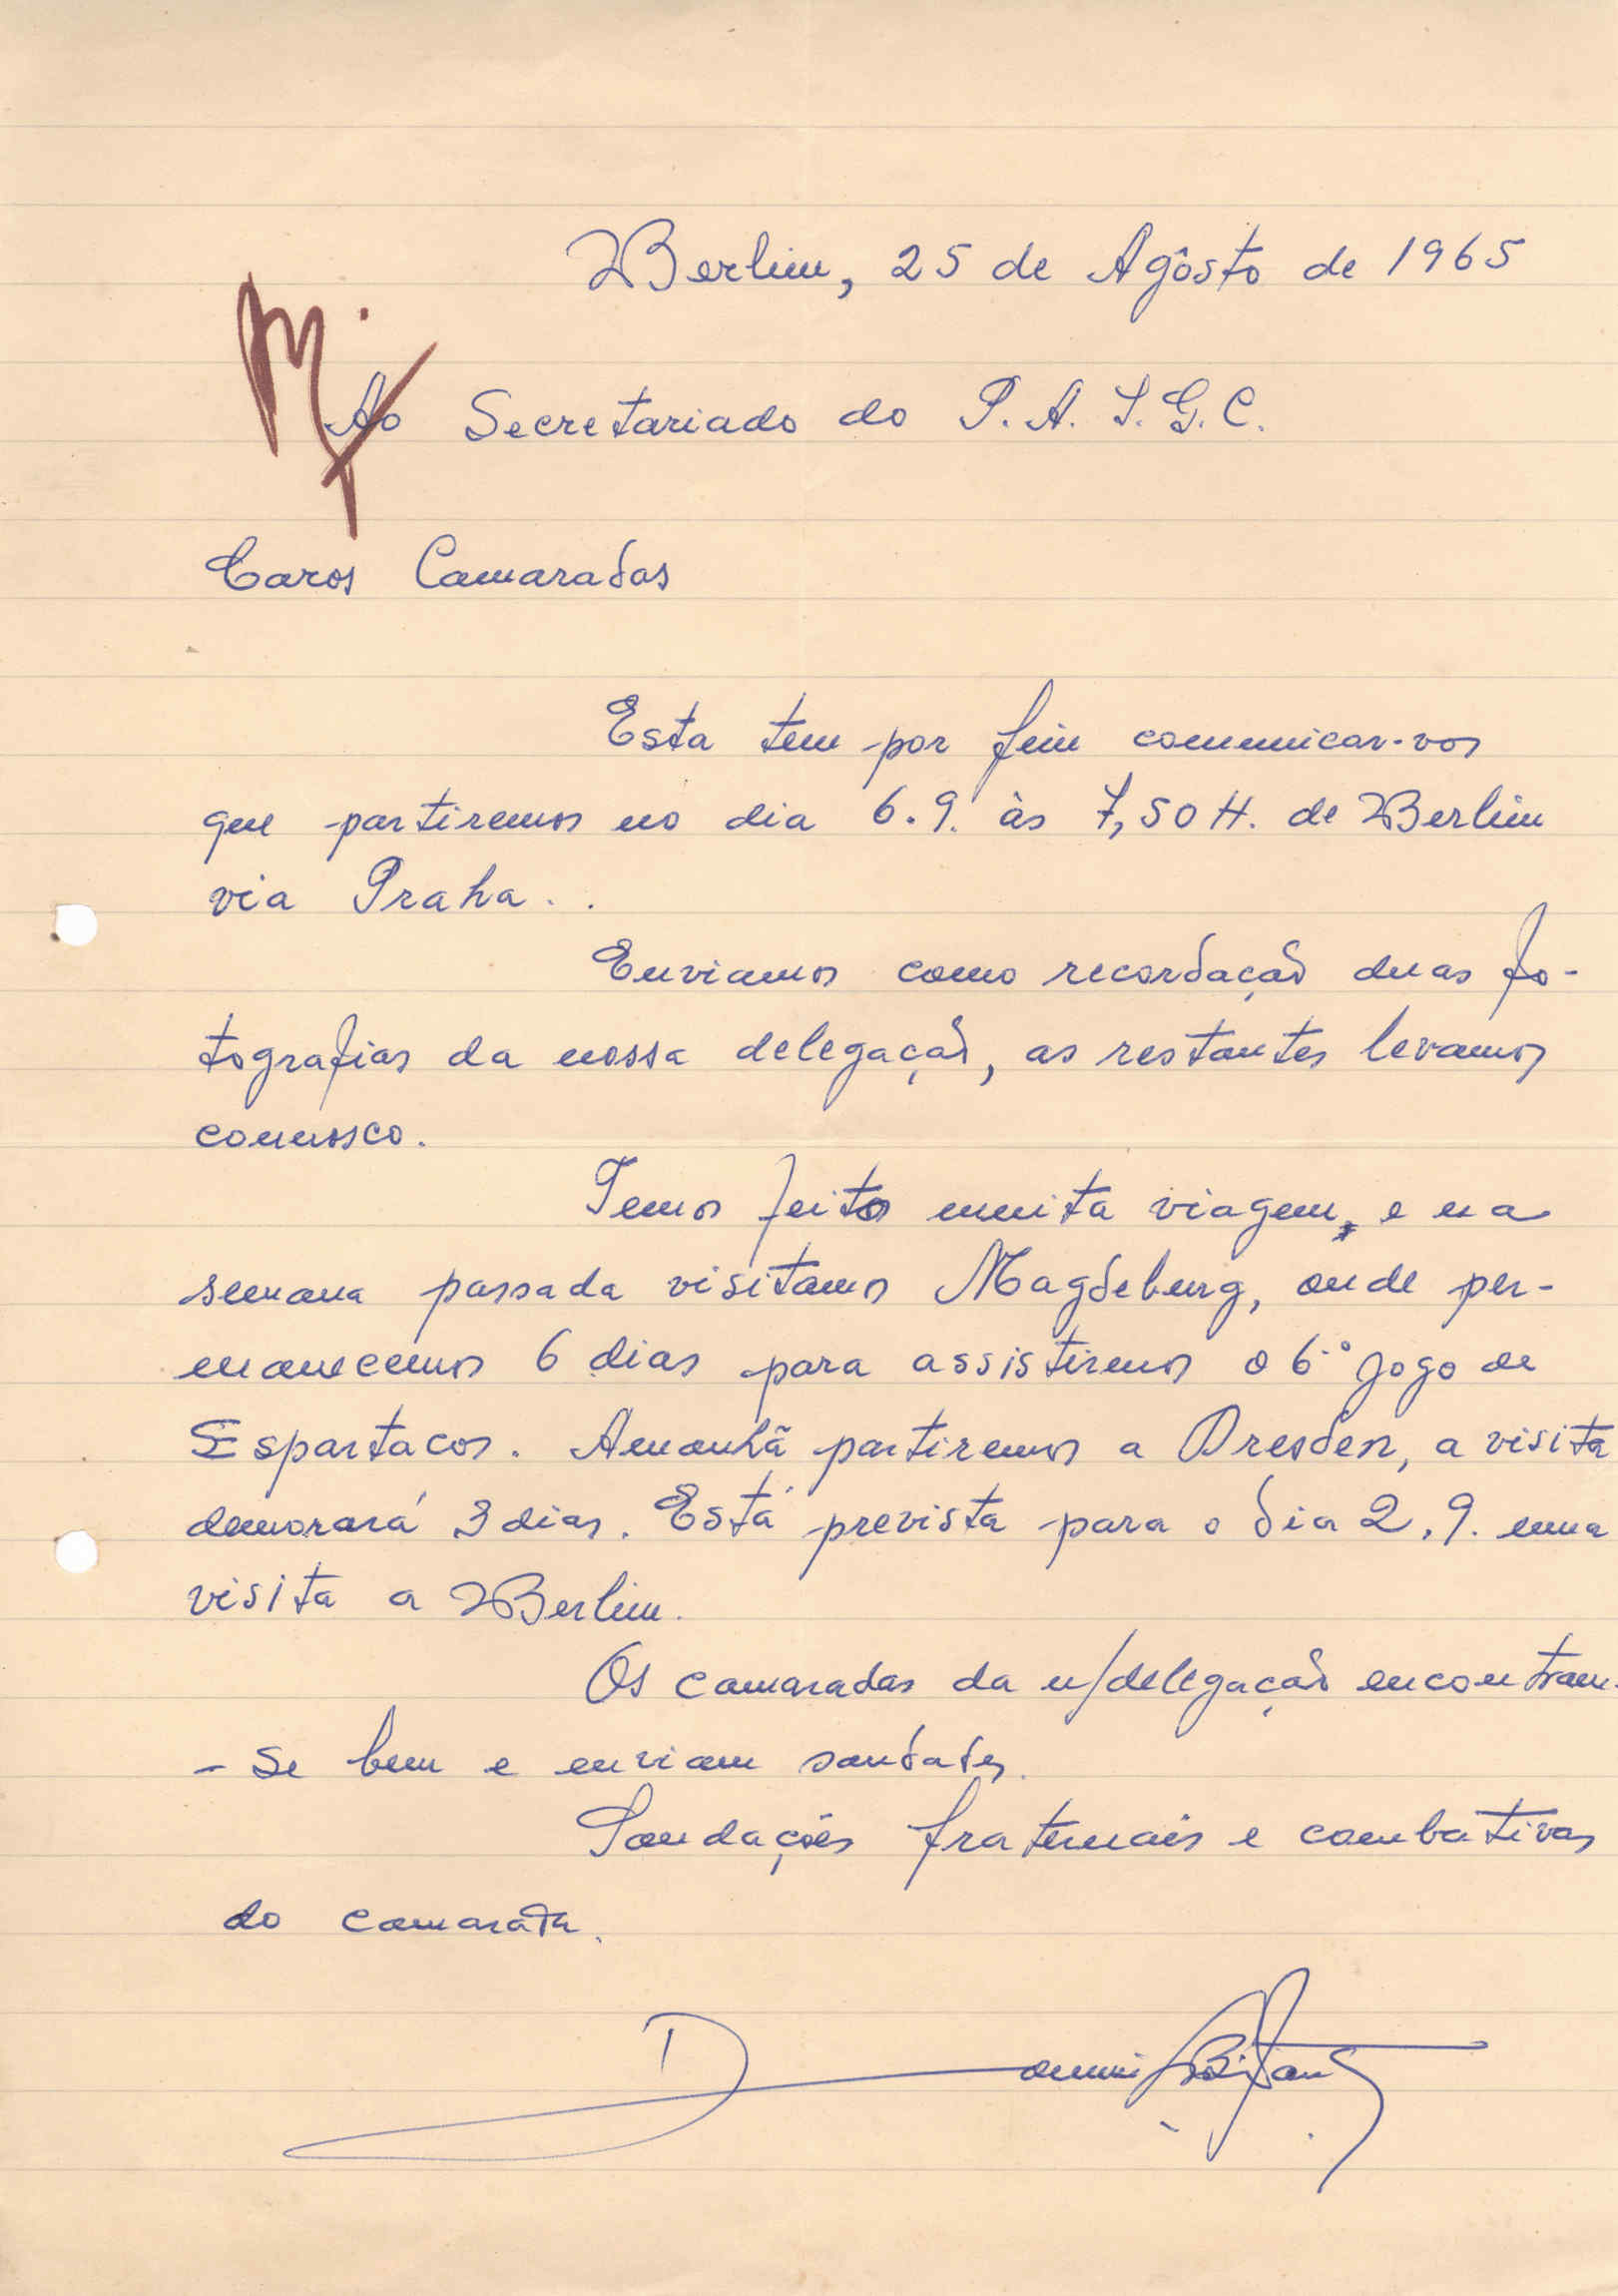 Berlim, 25 de Agôsto de 1965
Ao Secretariado do P.A.I.G.C.
Caros Camaradas
Esta tem por fim communicar-vos
que partiremos no dia 6.9. às 7,50 H. de Berlim
via Praha..
Enviamos como recordação duas fo-
tografias da nossa delegação, as restantes levamos
connosco.
Temos feito muita viagem, e na
semana passada visitamos Magdeburg, onde per-
manecemos 6 dias para assistirmos o 6.º Jogo de
Espartacos. Amanhã partiremos a Dresden, a visita
demorará 3 dias. Está prevista para o dia 2.9. uma
visita a Berlim.
Os camaradas da n/delegação encontram-
- se bem e enviam saudades.
Saudações fraternais e combativas
do camarada.